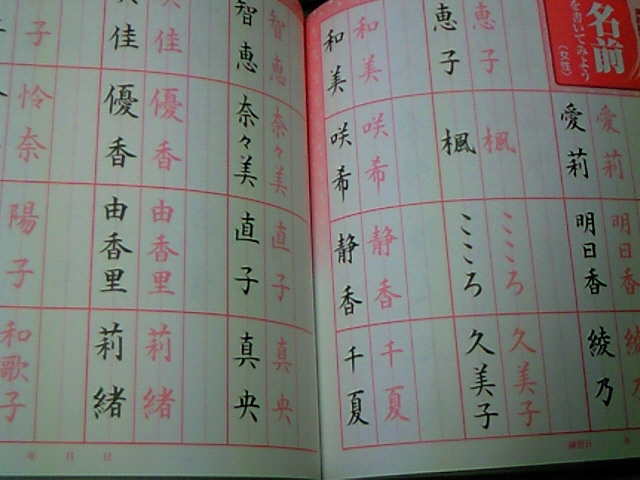 名前
を書いてみよう
(女性)
愛莉
愛莉
明日香
明日香
綾乃
恵子
恵子
楓
楓
こころ
こころ
久美子
久美子
和美
和美
咲希
咲希
静香
静香
千夏
千夏
練習日
年
智恵
智恵
奈々美
奈々美
直子
直子
真央
真央
佳
佳
優香
優香
由香里
由香里
莉緒
莉緒
子
怜奈
陽子
和歌子
年 月 日